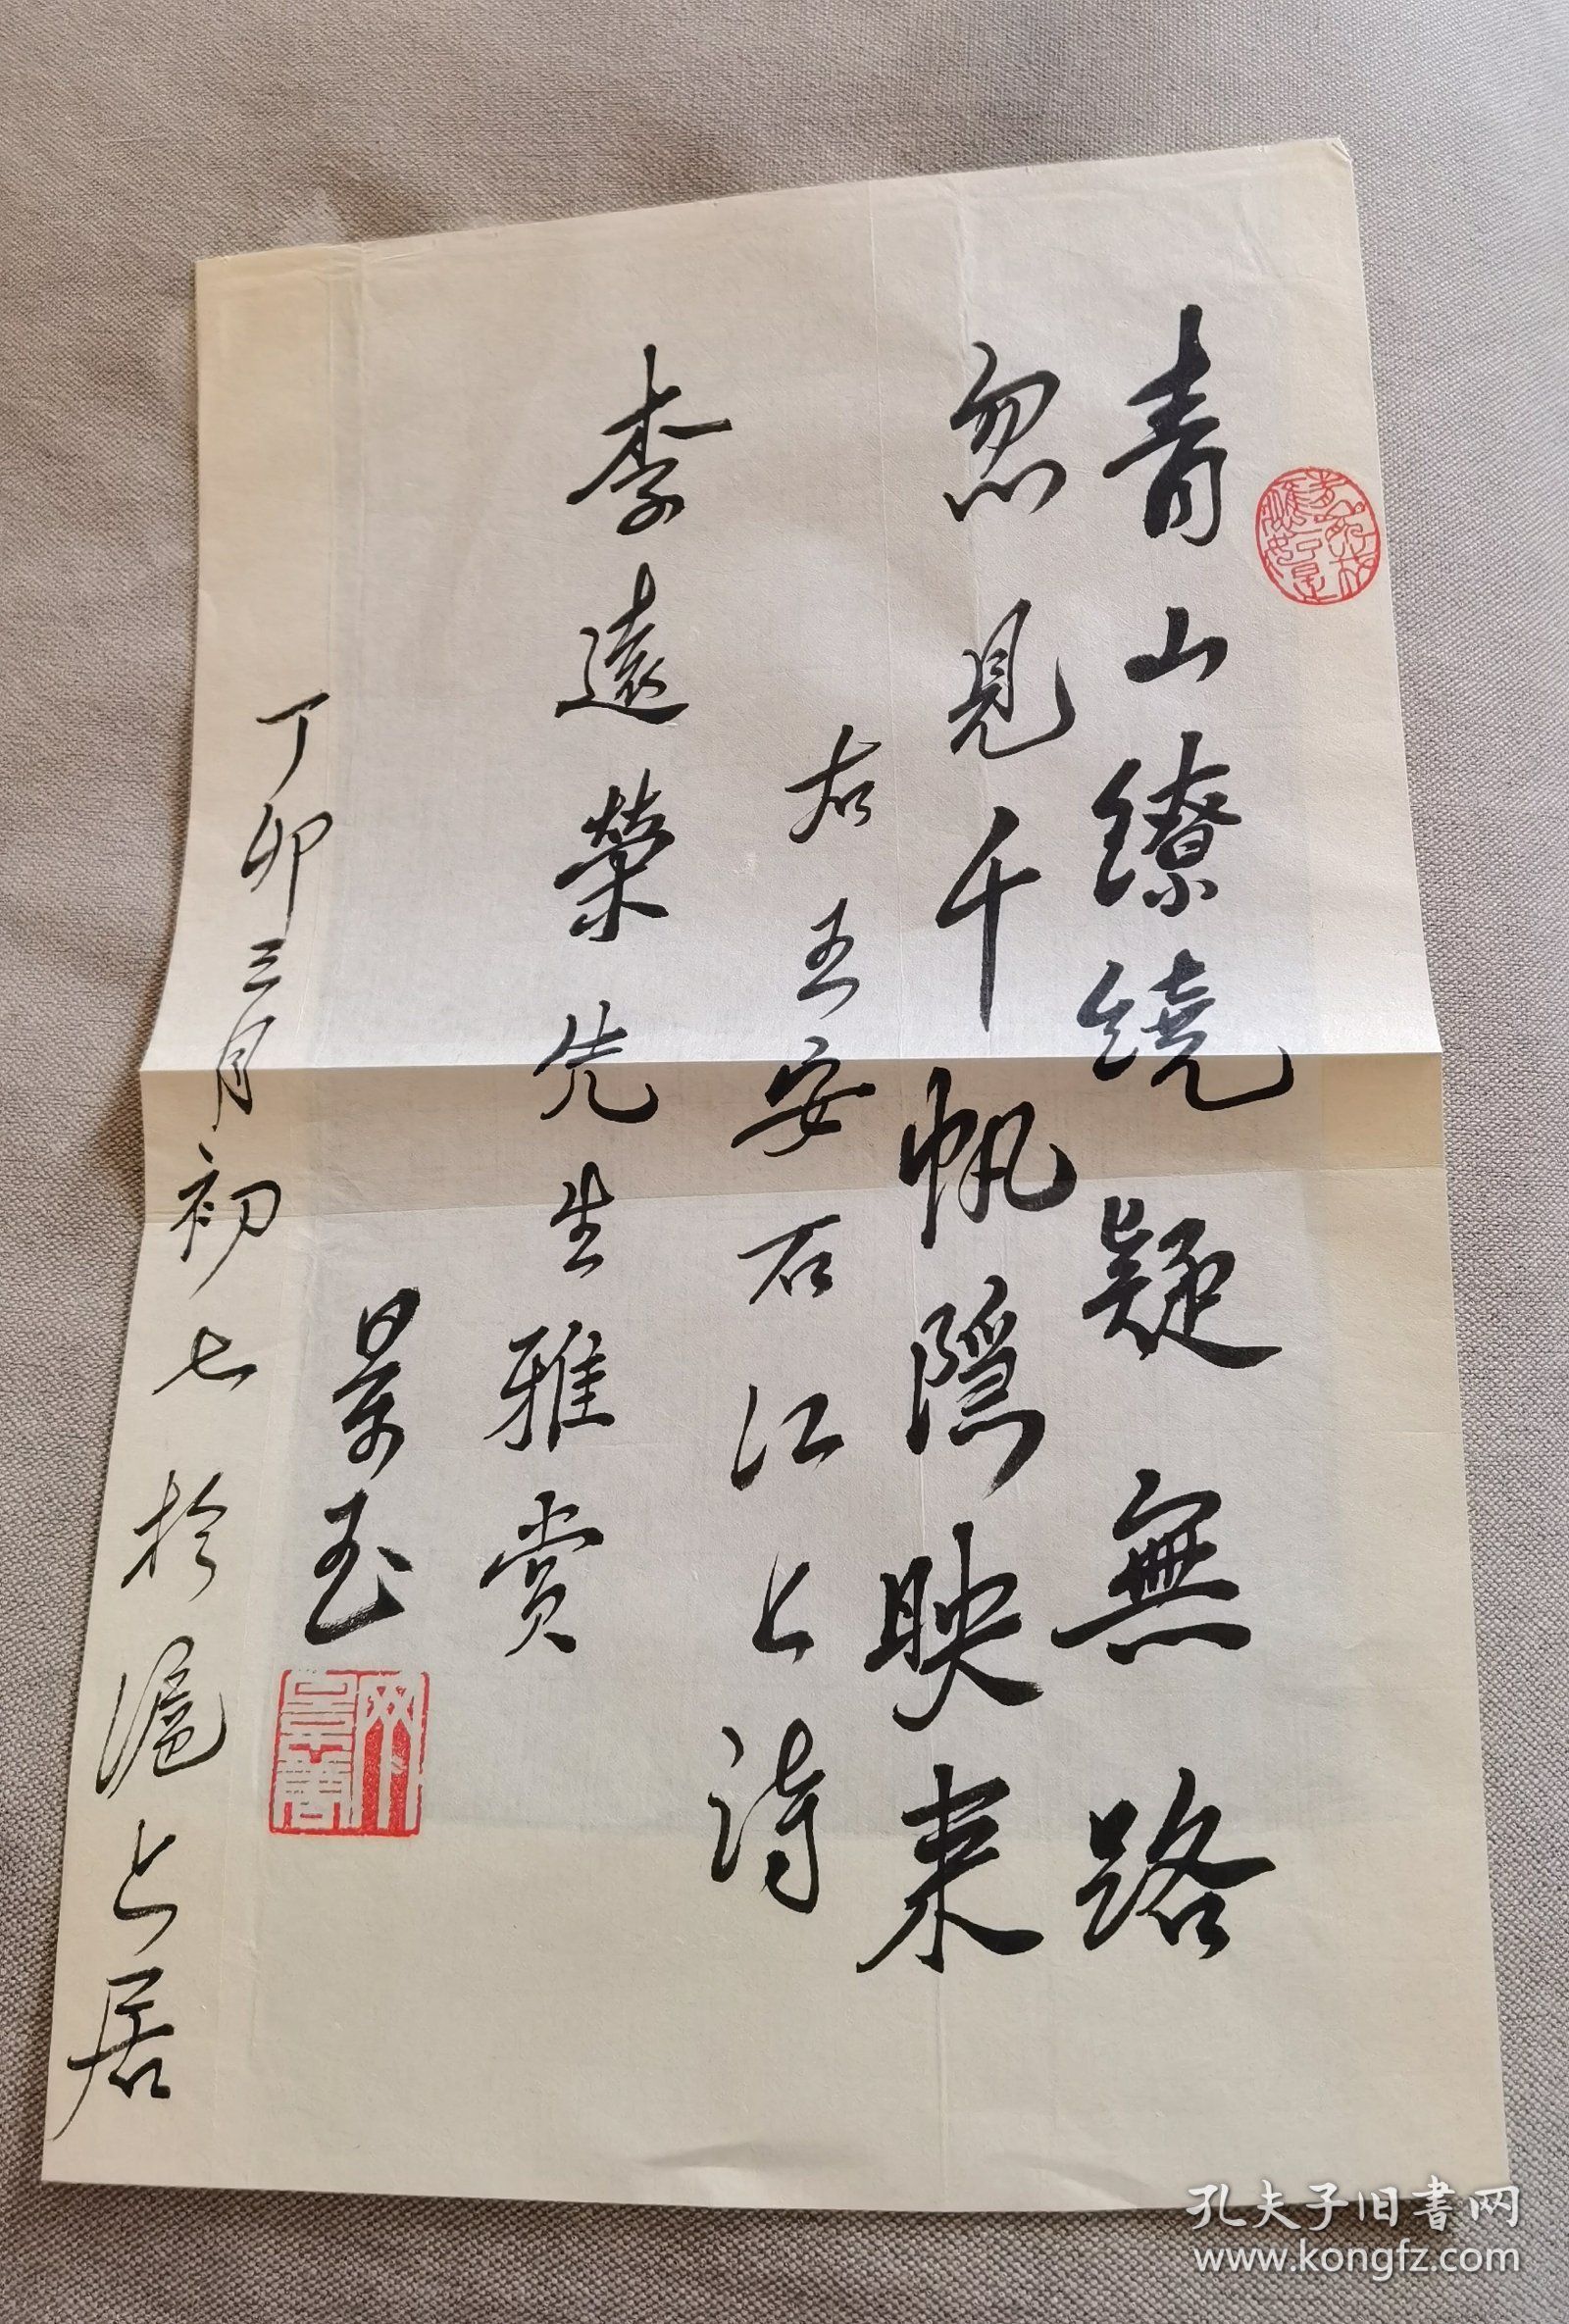 青山繚繞疑無路
忽見千帆隱映来
右王安石江上诗
李遠榮先生雅赏
景玉
丁卯三月初七於滬上居
孔夫子旧書网
www.kongfz.com